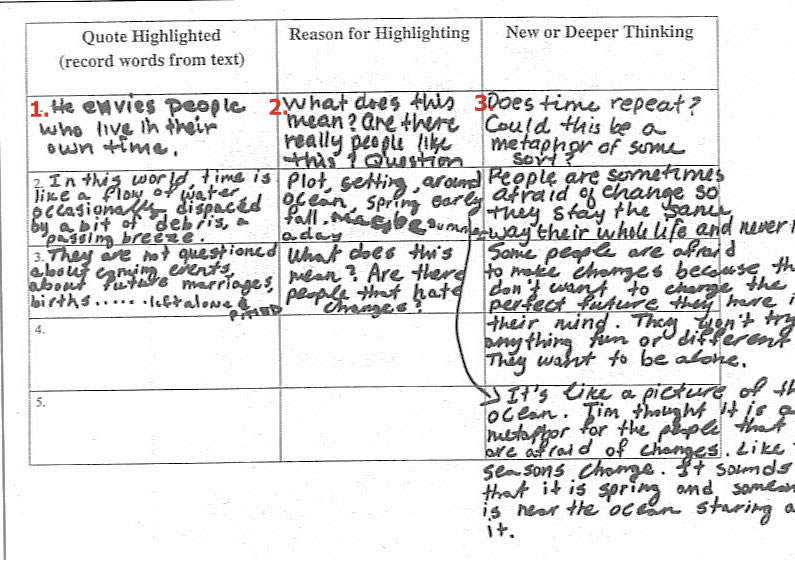 Quote Highlighted
(record words from text)
Reason for Highlighting
New or Deeper Thinking
1. He envies people
who live in their
own time.
2. What does this
mean? Are there
really people like
this? Question
3. Does time repeat?
Could this be a
metaphor of some
sort?
2. In this world time is
like a flow of water
occasionally dispaced
by a bit of debris, a
passing breeze.
Plot, setting, around
ocean, spring early
fall, maybe summer
a day
People are sometimes
afraid of change so
they stay the same
way their whole life and never
3. They are not questioned
about coming events,
about future marriages,
births...... left alone &
pitied
What does this
mean? Are there
people that hate
changes?
Some people are afraid
to make changes because th
don't want to change the
perfect future they have i
their mind. They won't try
anything fun or different
They want to be alone.
4.
5.
It's like a picture of th
ocean. Tim thought it is a
metaphor for the people that
are afraid of changes. Like
seasons change. It sounds
that it is spring and someon
is near the ocean staring a
it.